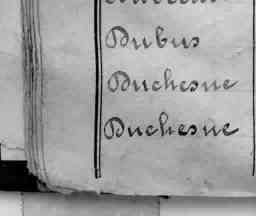 Dubus
Duchesne
Duchesne